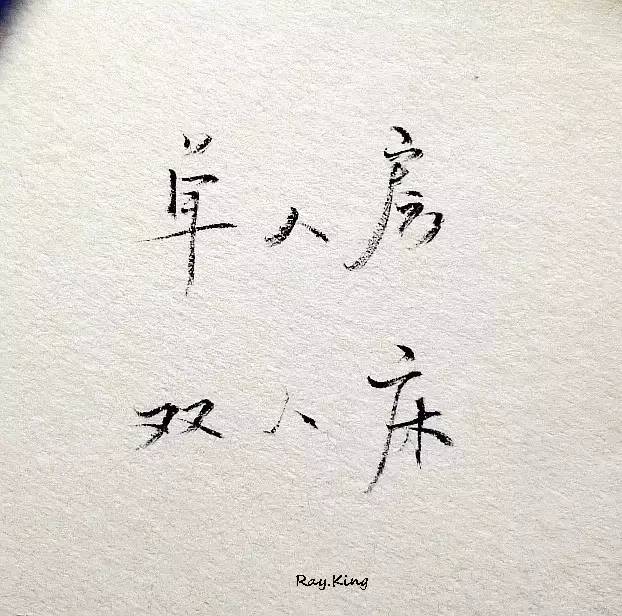 单人房
双人床
Ray.King